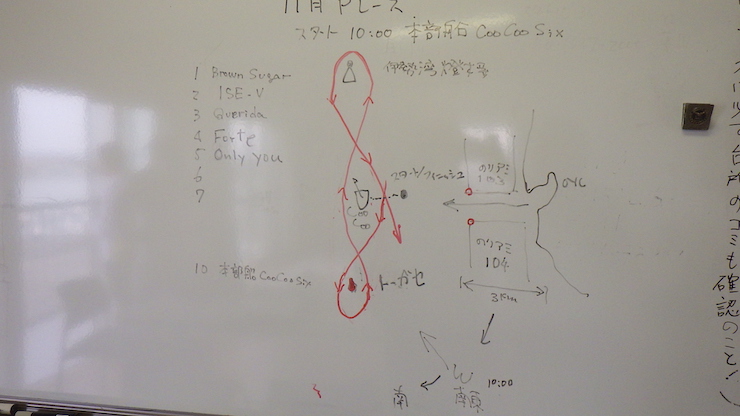 11月 Pレース
スタート 10:00 本部船 CooCoo Six
1 Brown Sugar
2 ISE-V
3 Querida
4 Forte
5 Only you
6
7
10 本部船 CooCoo Six
伊勢湾
スタート/フィニッシュ
Coo
Coo
トーガセ
のりアミ
103
OYC
のりアミ
104
3km
W 10:00
南
台所のゴミも確認のこと!)